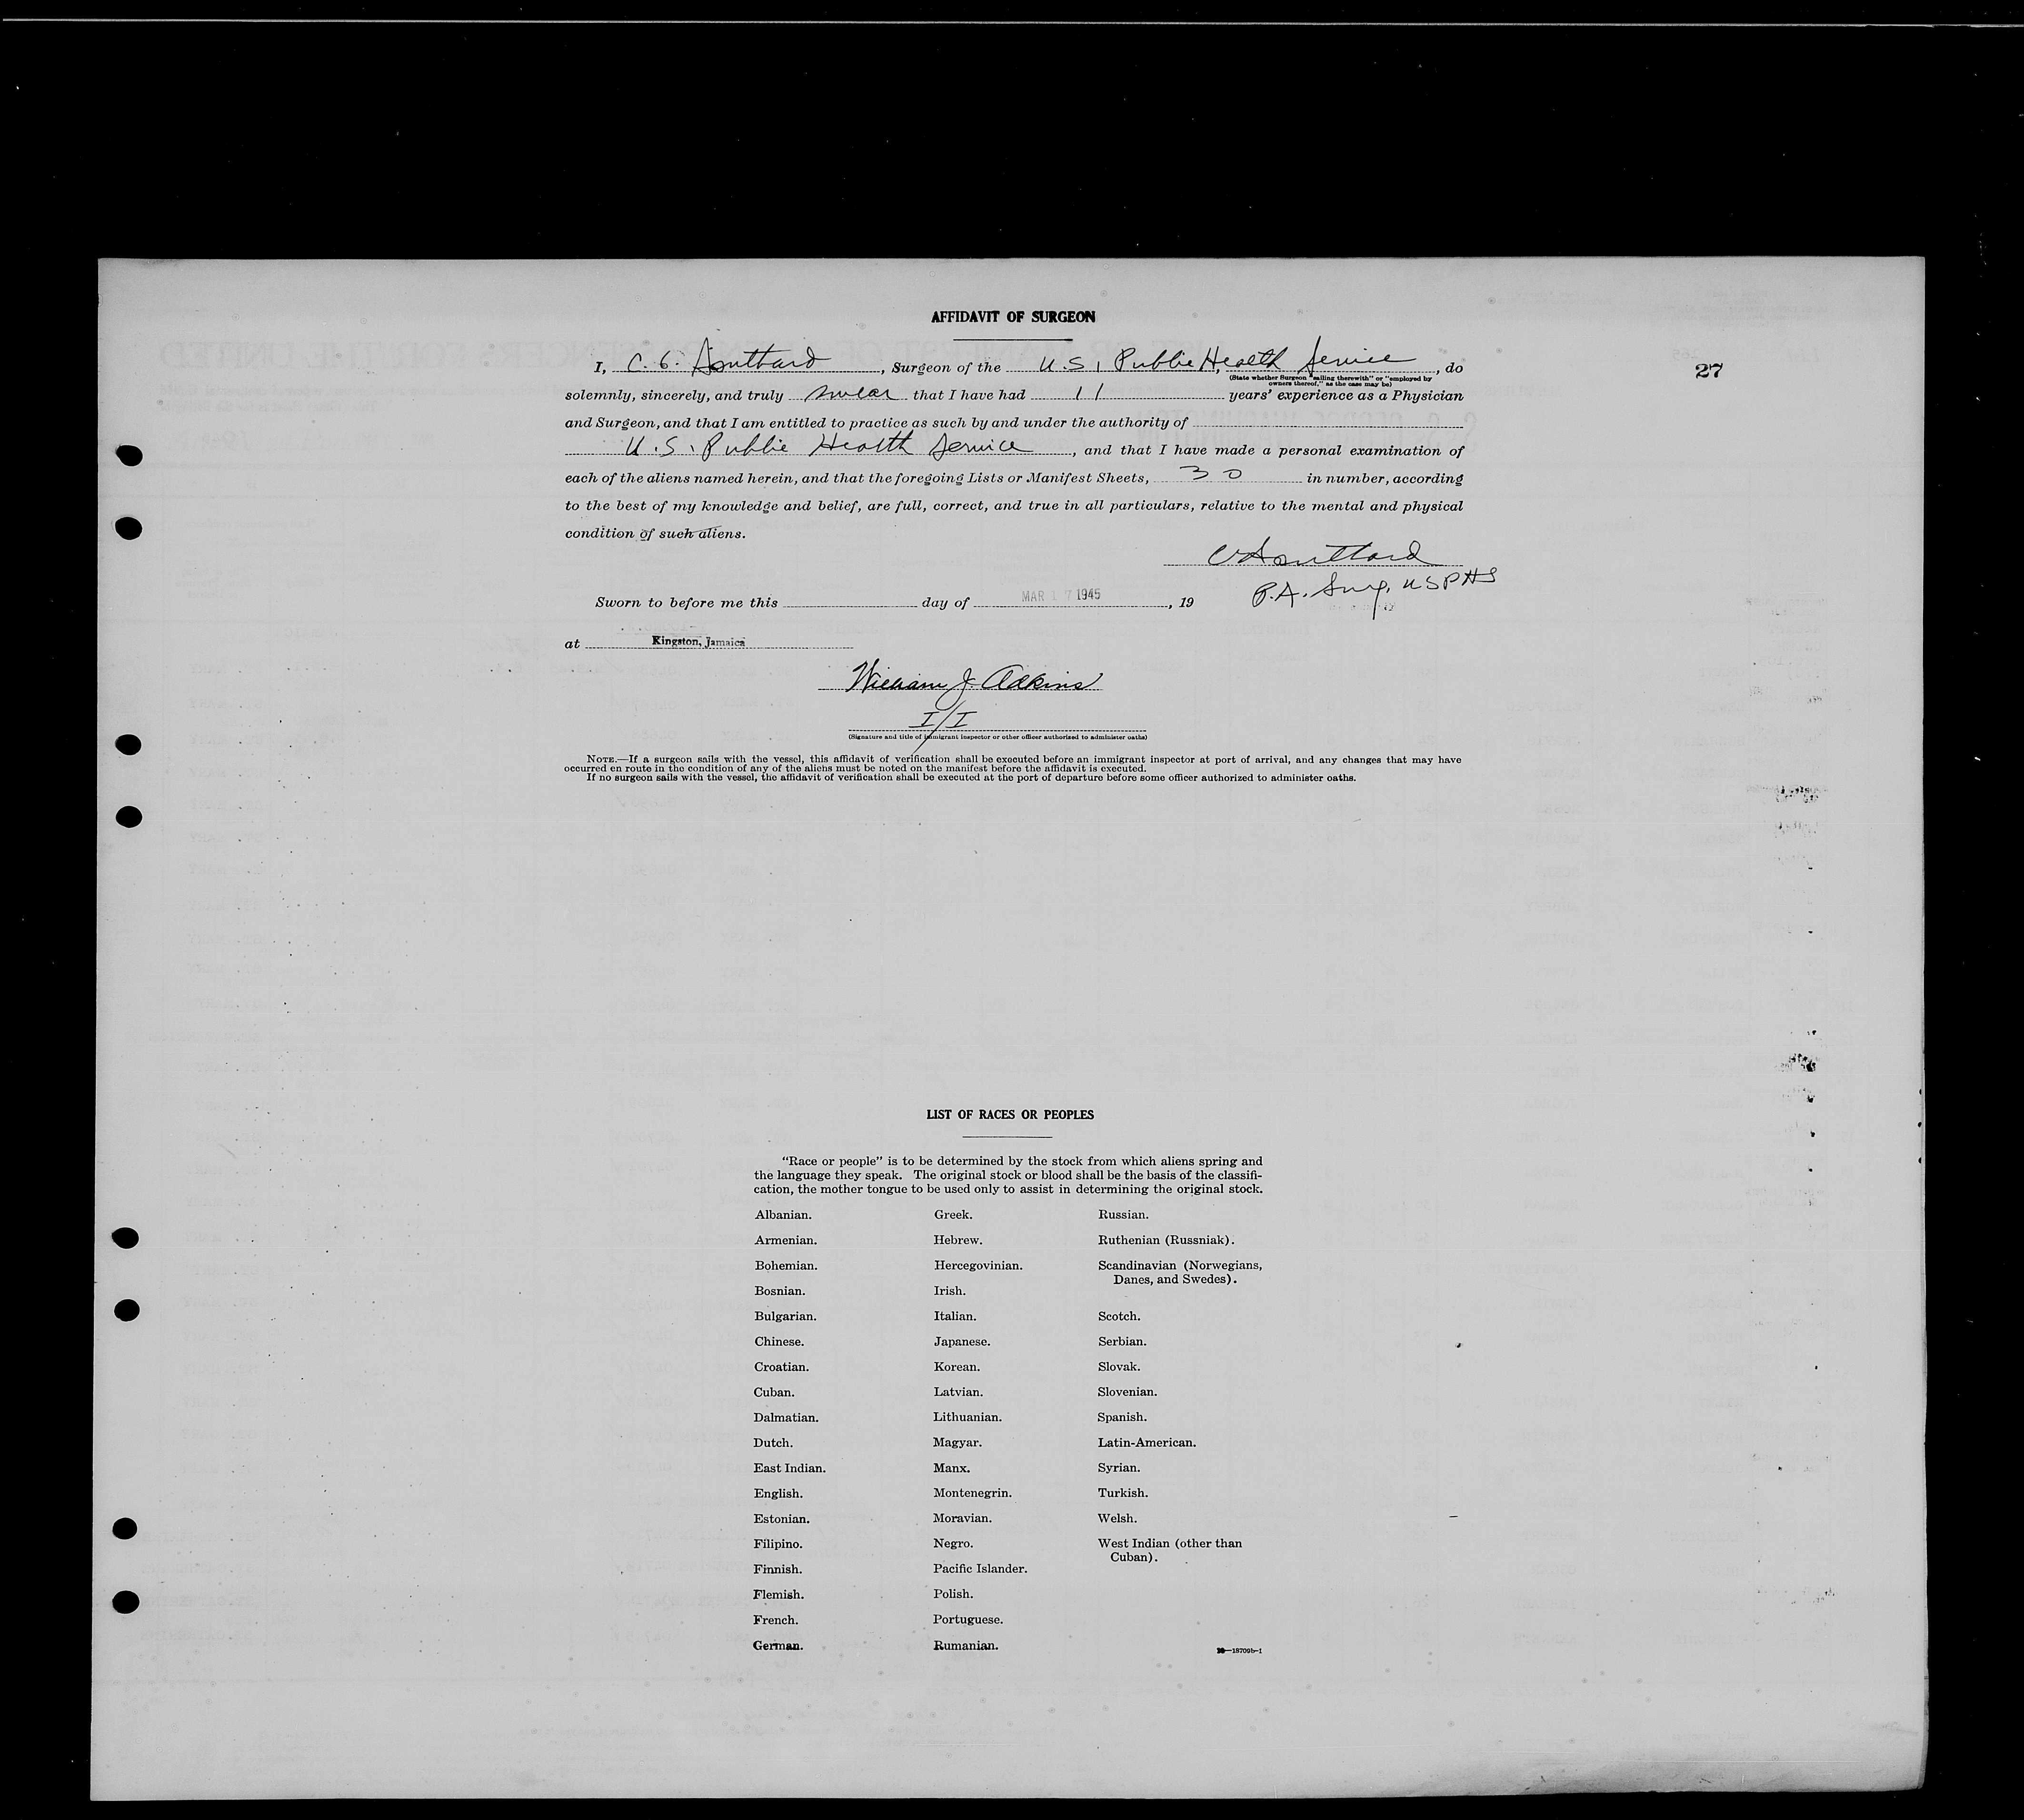 AFFIDAVIT OF SURGEON
27
I, C. E. Southard, Surgeon of the U.S. Public Health Service, do
(State whether Surgeon "sailing therewith" or "employed by
owners thereof," as the case may be)
solemnly, sincerely, and truly swear that I have had 11 years' experience as a Physician
and Surgeon, and that I am entitled to practice as such by and under the authority of
U.S. Public Health Service, and that I have made a personal examination of
each of the aliens named herein, and that the foregoing Lists or Manifest Sheets, 30 in number, according
to the best of my knowledge and belief, are full, correct, and true in all particulars, relative to the mental and physical
condition of such aliens.
C E Southard
P.A. Surg. USPHS
Sworn to before me this day of MAR 17 1945, 19
at Kingston, Jamaica
William J. Adkins
I/I
(Signature and title of immigrant inspector or other officer authorized to administer oaths)
NOTE.—If a surgeon sails with the vessel, this affidavit of verification shall be executed before an immigrant inspector at port of arrival, and any changes that may have
occurred en route in the condition of any of the aliens must be noted on the manifest before the affidavit is executed.
If no surgeon sails with the vessel, the affidavit of verification shall be executed at the port of departure before some officer authorized to administer oaths.
LIST OF RACES OR PEOPLES
"Race or people" is to be determined by the stock from which aliens spring and
the language they speak. The original stock or blood shall be the basis of the classifi-
cation, the mother tongue to be used only to assist in determining the original stock.
Albanian.
Armenian.
Bohemian.
Bosnian.
Bulgarian.
Chinese.
Croatian.
Cuban.
Dalmatian.
Dutch.
East Indian.
English.
Estonian.
Filipino.
Finnish.
Flemish.
French.
German.
Greek.
Hebrew.
Hercegovinian.
Irish.
Italian.
Japanese.
Korean.
Latvian.
Lithuanian.
Magyar.
Manx.
Montenegrin.
Moravian.
Negro.
Pacific Islander.
Polish.
Portuguese.
Rumanian.
Russian.
Ruthenian (Russniak).
Scandinavian (Norwegians,
Danes, and Swedes).
Scotch.
Serbian.
Slovak.
Slovenian.
Spanish.
Latin-American.
Syrian.
Turkish.
Welsh.
West Indian (other than
Cuban).
16—18709b-1